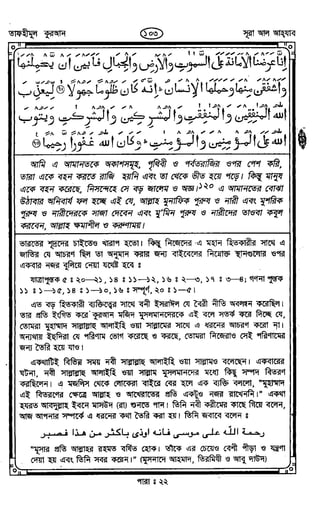 তাফহীমুল কুরআন
১০৩
সূরা আল আহযাব
إِنَّا عَرَضْنَا الْأَمَانَةَ عَلَى السَّمٰوٰتِ وَالْأَرْضِ وَالْجِبَالِ فَأَبَيْنَ أَنْ يَحْمِلْنَهَا
وَأَشْفَقْنَ مِنْهَا وَحَمَلَهَا الْإِنْسَانُ ۚ إِنَّهُ كَانَ ظَلُومًا جَهُولًا ۝ لِيُعَذِّبَ
اللهُ الْمُنٰفِقِينَ وَالْمُنٰفِقٰتِ وَالْمُشْرِكِينَ وَالْمُشْرِكٰتِ وَيَتُوبَ
اللهُ عَلَى الْمُؤْمِنِينَ وَالْمُؤْمِنٰتِ ۗ وَكَانَ اللهُ غَفُورًا رَحِيمًا ۝
আমি এ আমানতকে আকাশসমূহ, পৃথিবী ও পর্বতরাজির ওপর পেশ করি,
তারা একে বহন করতে রাজি হয়নি এবং তা থেকে ভীত হয়ে পড়ে। কিন্তু মানুষ
একে বহন করেছে, নিসন্দেহে সে বড় জালেম ও অজ্ঞ।১২০ এ আমানতের বোঝা
উঠাবার অনিবার্য ফল হচ্ছে এই যে, আল্লাহ মুনাফিক পুরুষ ও নারী এবং মুশরিক
পুরুষ ও নারীদেরকে সাজা দেবেন এবং মু'মিন পুরুষ ও নারীদের তাওবা কবুল
করবেন, আল্লাহ ক্ষমাশীল ও করুণাময়।
তারতের সূরতের চাইতেও খারাপ হতো। কিন্তু নিজেদের এ মহান হিতকারীর সাথে এ
জাতির যে আচরণ ছিল তা অনুমান করার জন্য বাইবেলের নিম্নোক্ত স্থানগুলোর ওপর
একবার নজর বুলিয়ে নেয়া যথেষ্ট হবে ঃ
যাত্রাপুস্তক ৫ ঃ ২০–২১, ১৪ ঃ ১১–১২, ১৬ ঃ ২–৩, ১৭ ঃ ৩–৪; গণনা পুস্তক
১১ ঃ ১–১৫, ১৪ ঃ ১–১০, ১৬ ঃ সম্পূর্ণ, ২০ ঃ ১–৫।
এত বড় হিতকারী ব্যক্তিত্বের সাথে বনী ইসরাঈল যে বৈরী নীতি অবলম্বন করেছিল।
তার প্রতি ইংগিত করে কুরআন মজিদ মুসলমানদেরকে এই বলে সতর্ক করে দিচ্ছে যে,
তোমরা মুহাম্মাদ সাল্লাল্লাহু আলাইহি ওয়া সাল্লামের সাথে এ ধরনের আচরণ করো না।
অন্যথায় ইহুদিরা যে পরিণাম ভোগ করেছে ও করছে, তোমরা নিজেরাও সেই পরিণামের
জন্য তৈরি হয়ে যাও।
একথাটিই বিভিন্ন সময় নবী সাল্লাল্লাহু আলাইহি ওয়া সাল্লামও বলেছেন। একবারের
ঘটনা, নবী সাল্লাল্লাহু আলাইহি ওয়া সাল্লাম মুসলমানদের মধ্যে কিছু সম্পদ বিতরণ
করছিলেন। এ মজলিস থেকে লোকেরা বাইরে বের হলে এক ব্যক্তি বললো, "মুহাম্মাদ
এই বিতরণের ক্ষেত্রে আল্লাহ ও আখেরাতের প্রতি একটুও নজর রাখেননি।" একথা
হযরত আবদুল্লাহ ইবনে মাসউদ (রা) শুনতে পান। তিনি নবী করীমের কাছে গিয়ে বলেন,
আজ আপনার সম্পর্কে এ ধরনের কথা তৈরি করা হয়। তিনি জবাবে বলেন ঃ
رحمة الله على موسى فانه اوذى باكثر من هذا فصبر
"মূসার প্রতি আল্লাহর রহমত বর্ষিত হোক। তাঁকে এর চেয়েও বেশী পীড়া ও যন্ত্রণা
দেয়া হয় এবং তিনি সবর করেন।" (মুসনাদে আহমাদ, তিরমিযী ও আবু দাউদ)
পারা ঃ ২২